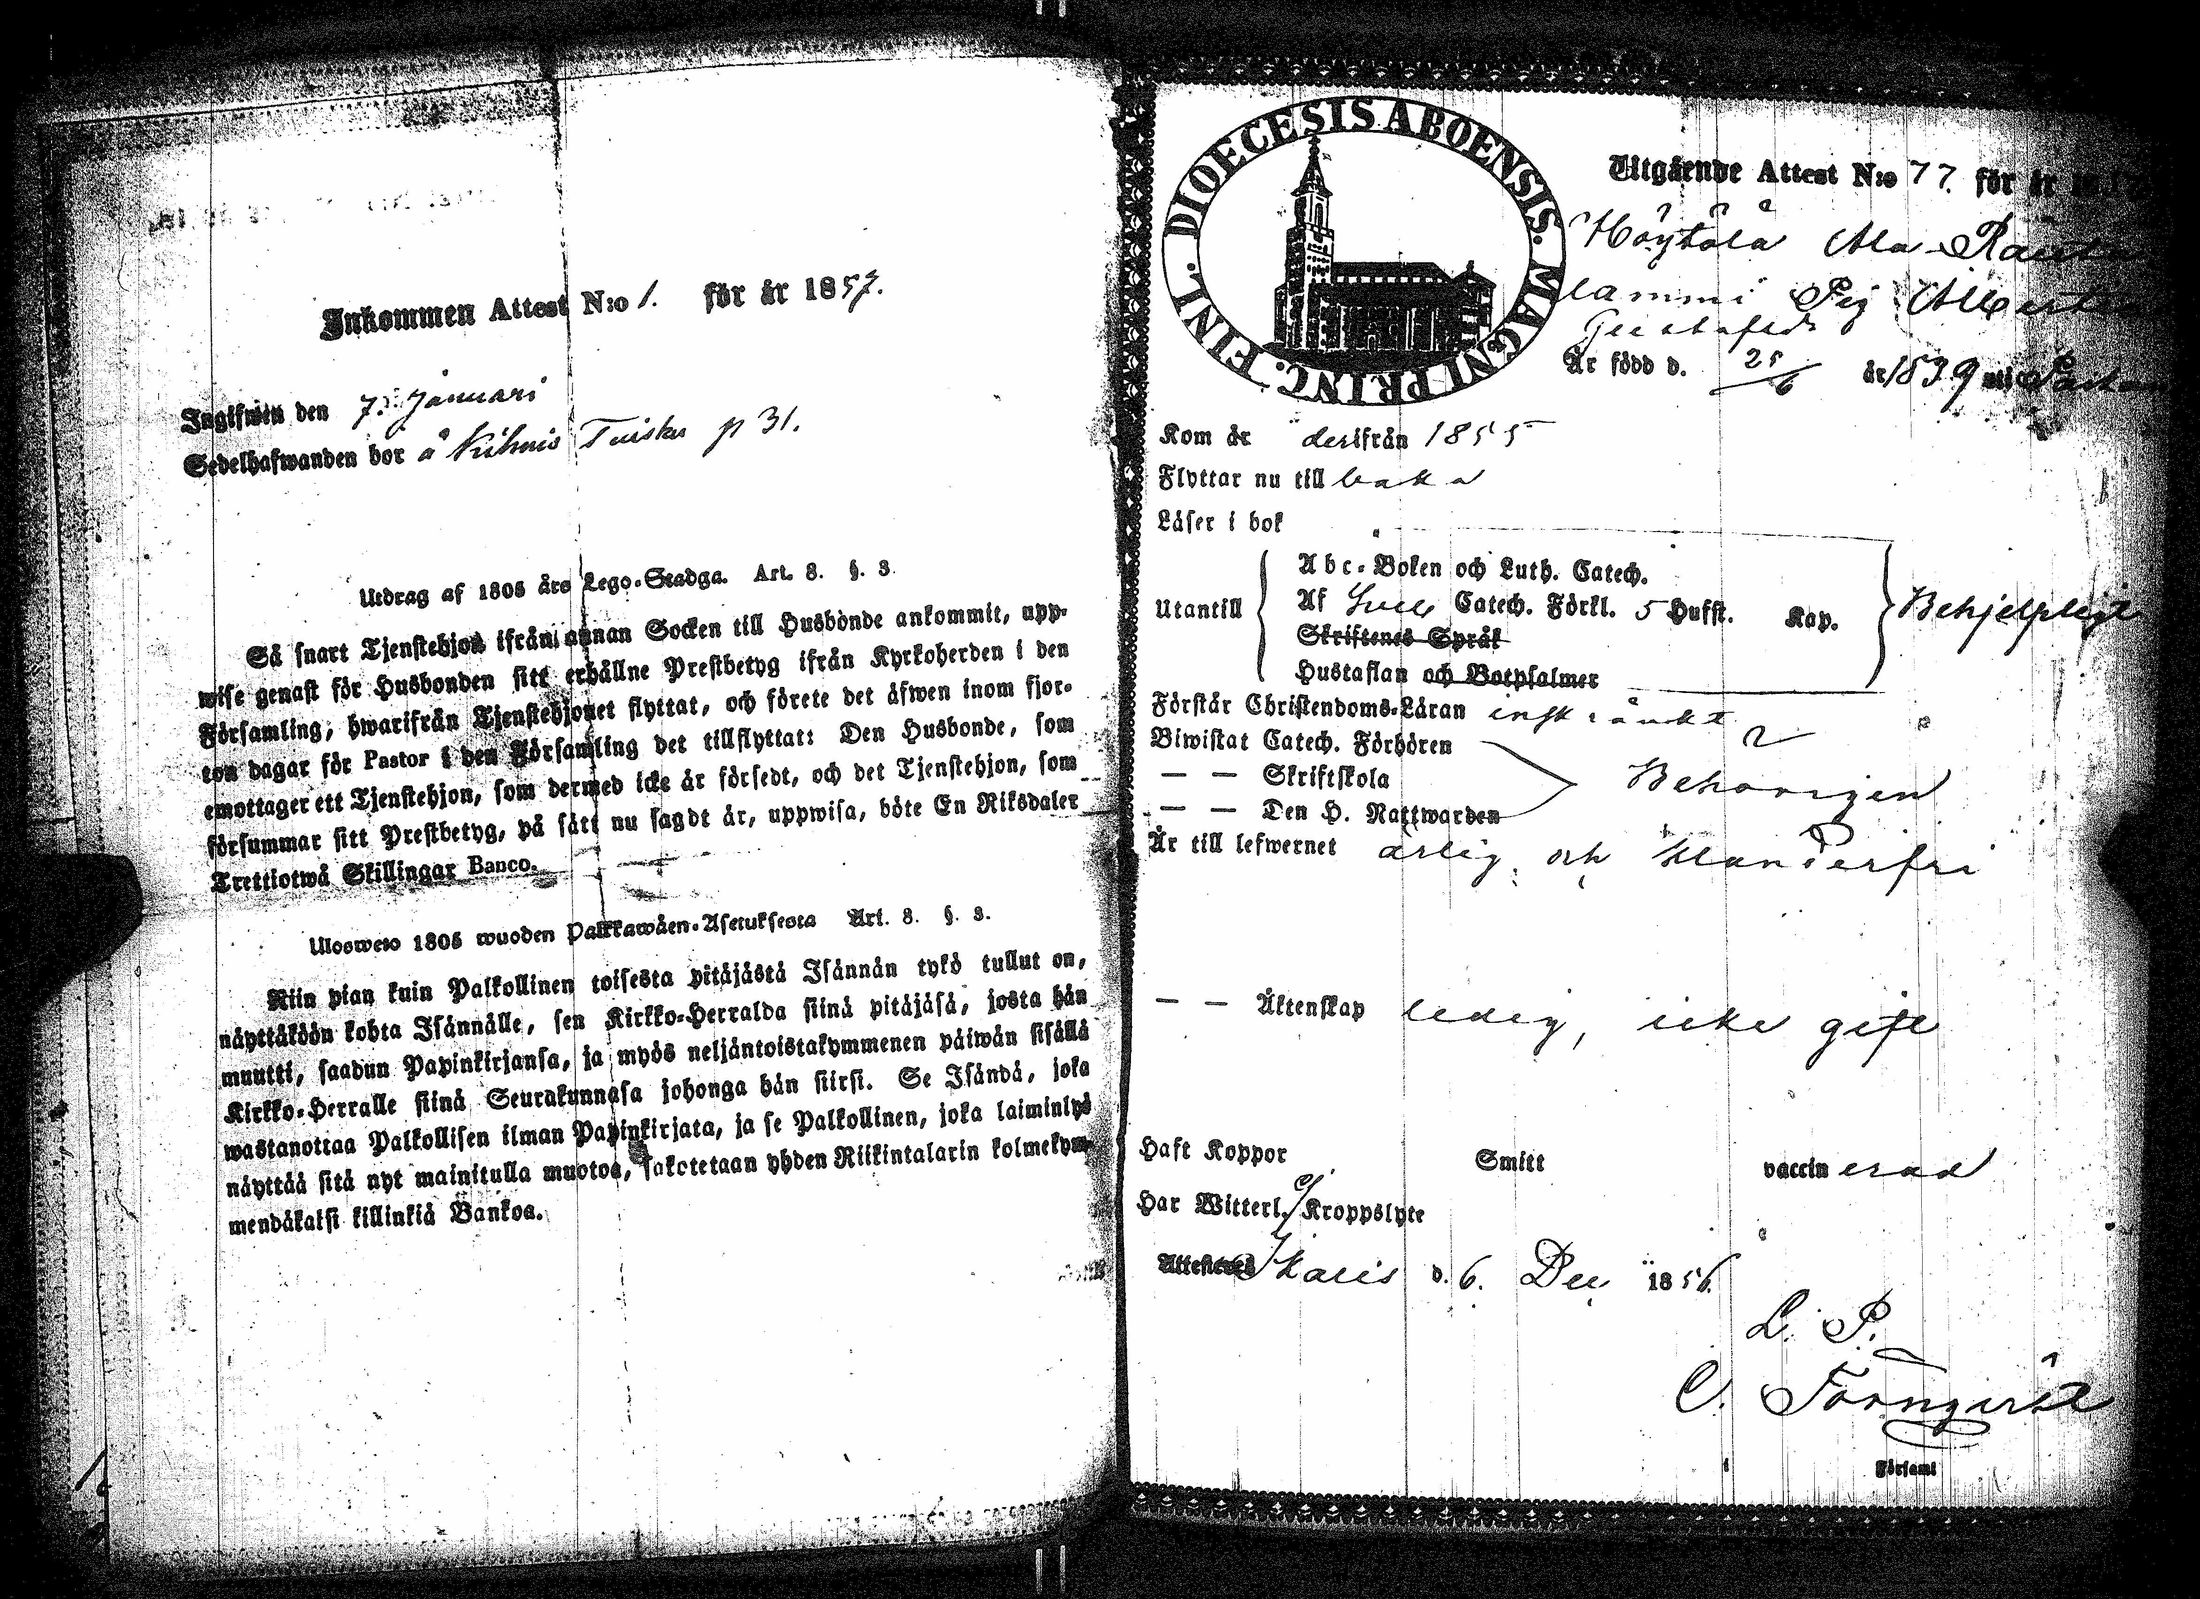 Inkommen Attest N:o 1. för år 1857.
Ingifwen den 7. Januari
Sedelhafwanden bor å Kihnis Tuisku p 31.
Utdrag af 1805 års Lego-Stadga. Art. 8. §. 3.
Så snart Tjenstehjon ifrån annan Socken till Husbonde ankommit, upp-
wise genast för Husbonden sitt erhållne Prestbetyg ifrån Kyrkoherden i den
Församling, hwarifrån Tjenstehjonet flyttat, och förete det äfwen inom fjor-
ton dagar för Pastor i den Församling det tillflyttat: Den Husbonde, som
emottager ett Tjenstehjon, som dermed icke är försedt, och det Tjenstehjon, som
försummar sitt Prestbetyg, på sätt nu sagdt är, uppwisa, böte En Riksdaler
Trettiotwå Skillingar Banco.
Ulosweto 1805 wuoden Palkkawäen-Asetuksesta Art. 8. §. 3.
Niin pian kuin Palkollinen toisesta pitäjästä Isännän tykö tullut on,
näyttäköön kohta Isännälle, sen Kirkko-Herralda siinä pitäjäsä, josta hän
muutti, saadun Papinkirjansa, ja myös neljäntoistakymmenen päiwän sisällä
Kirkko-Herralle siinä Seurakunnasa johonga hän siirsi. Se Isändä, joka
wastanottaa Palkollisen ilman Papinkirjata, ja se Palkollinen, joka laiminlyö
näyttää sitä nyt mainitulla muotoa, sakotetaan yhden Riikintalarin kolmekym-
mendäkaksi killinkiä Bankoa.
DIOECESIS ABOENSIS. MAGNI PRINC. FINL.
Utgående Attest N:o 77. för år
Höytölä Ala
lammi Pig
Gustafsd:r
Är född d. 25/6 år 1839 uti
Kom år derifrån 1855
Flyttar nu till baka
Läser i bok
Abc-Boken och Luth. Catech.
Utantill Af Catech. Förkl. 5 Hufst. Kap. Behjelpligt
Skriftenes Språk
Hustaflan och Botpsalmer
Förstår Christendoms-Läran inskränkt
Biwistat Catech. Förhören
— — Skriftskola Behörigen
— — Den H. Nattwarden
Är till lefwernet ärlig och klanderfri
— — Äktenskap ledig, icke gift
Haft Koppor Smitt vaccin erad
Har Witterl. ej Kroppslyte
Attesteras Karis d. 6. Dec 1856.
L. P.
C. Törnqvist
Församl